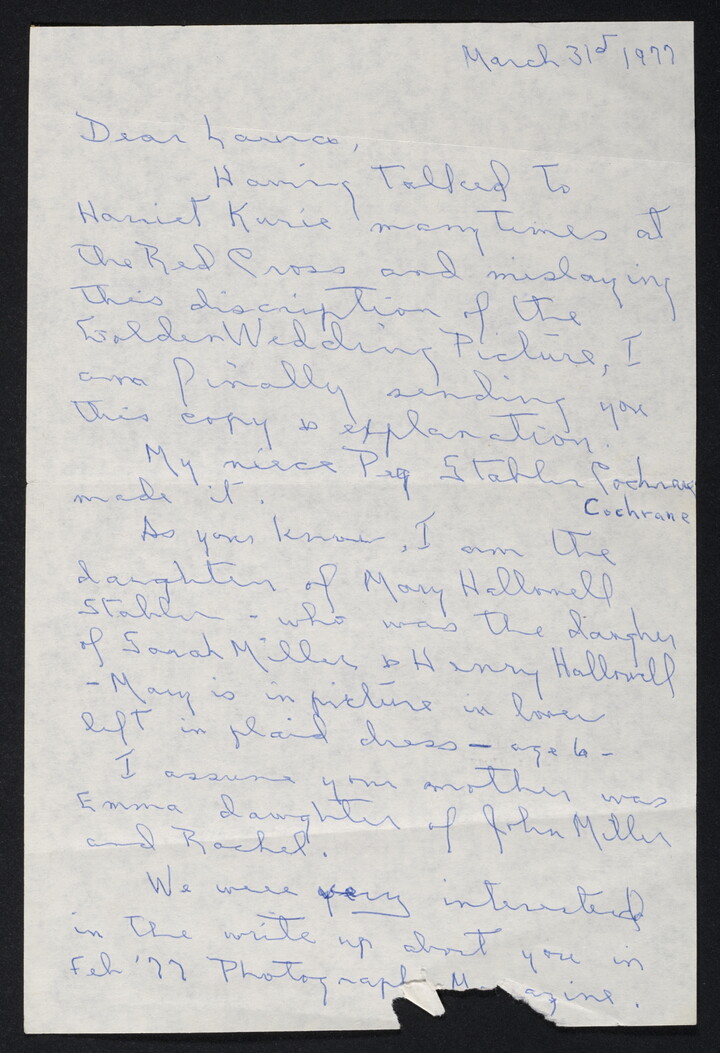 March 31st 1977
Dear
Having talked to
Harriet Kurie many times at
the Red Cross and mislaying
this discription of the
Golden Wedding Picture, I
am finally sending you
this copy & explanation.
My niece Peg Stabler Cochrane
made it. Cochrane
As you know, I am the
daughter of Mary Hallowell
Stabler - who was the daugher
of Sarah Miller & Henry Hallowell
- Mary is in picture in lower
left in plaid dress - age 6 -
I assume your mother was
Emma daughter of John Miller
and Rachel.
We were very interested
in the write up about you in
Feb '77 Photograph Magazine.